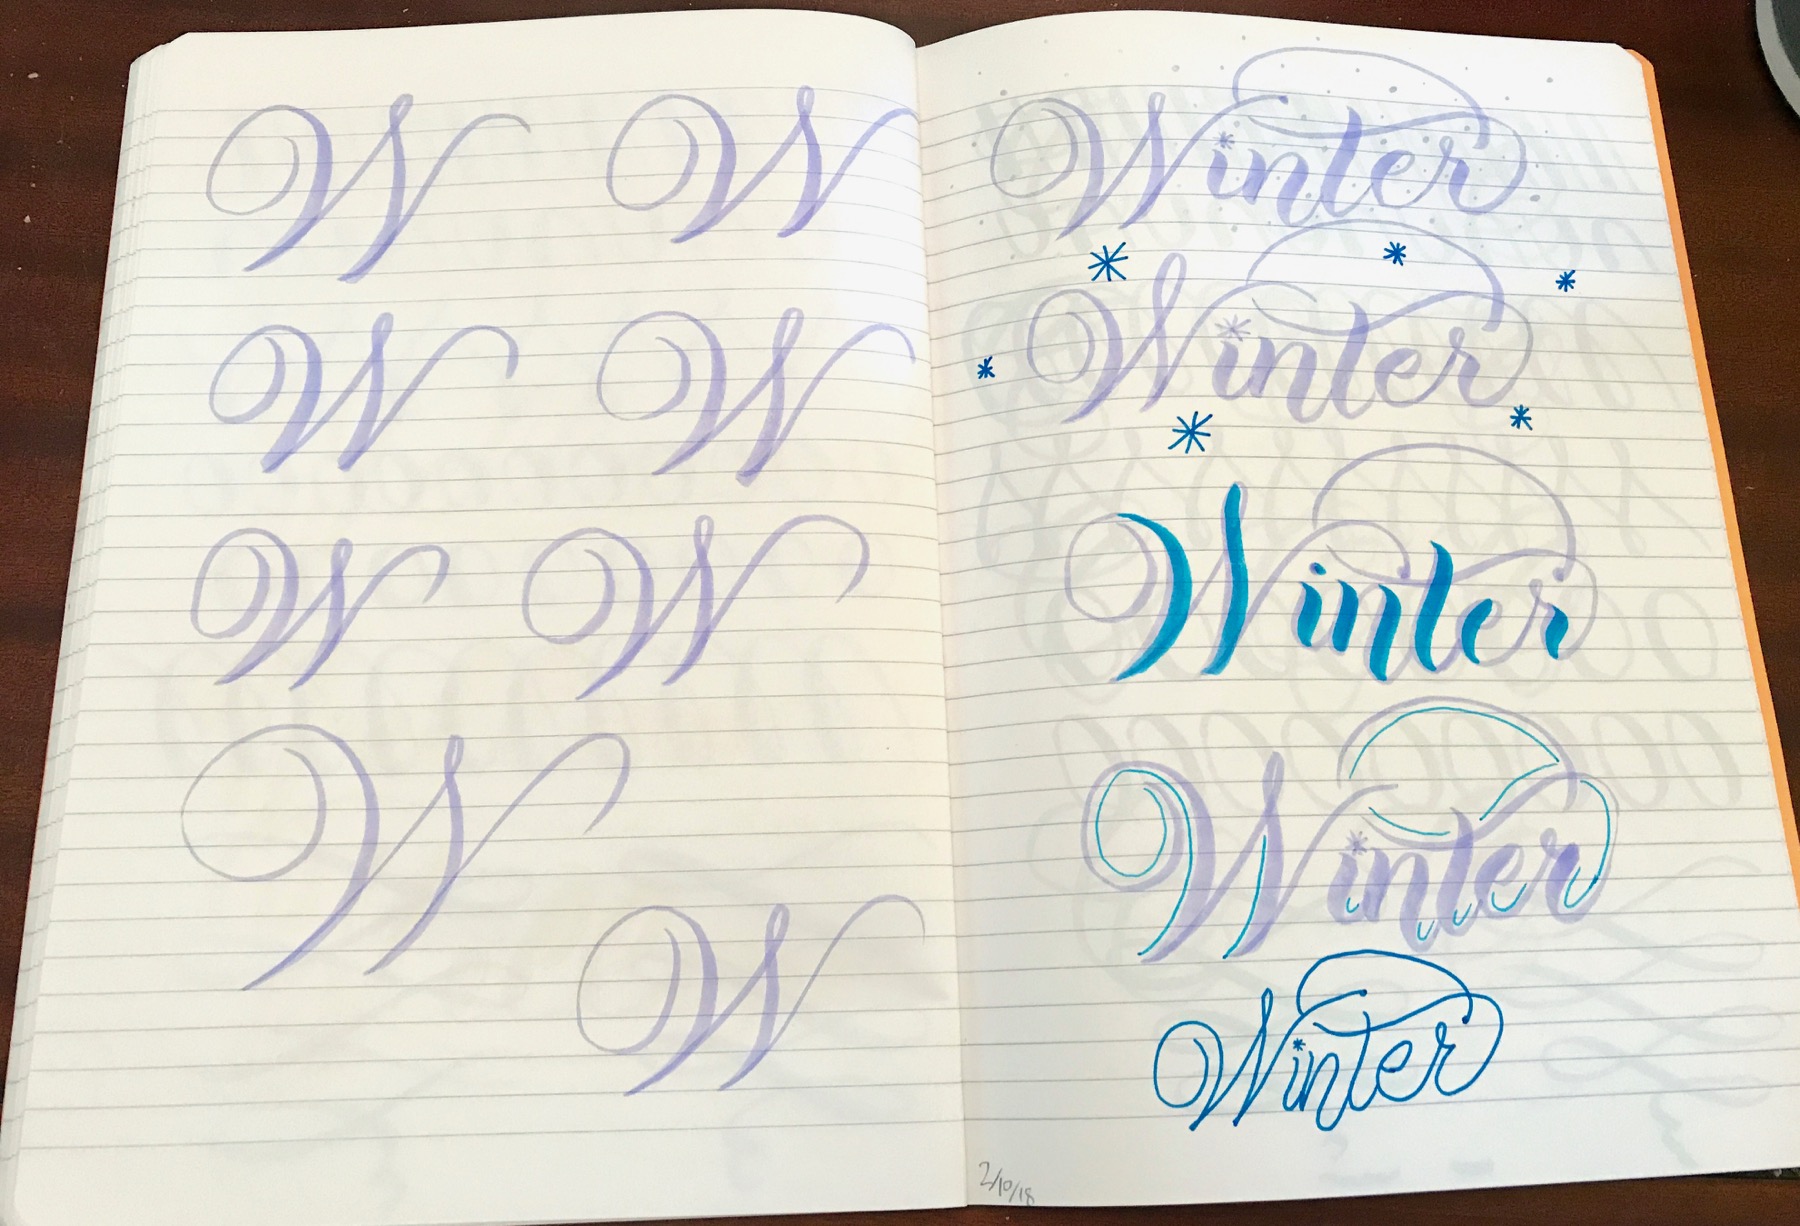 W W
W W
W W
W
W
Winter
Winter
Winter
Winter
Winter
2/10/18